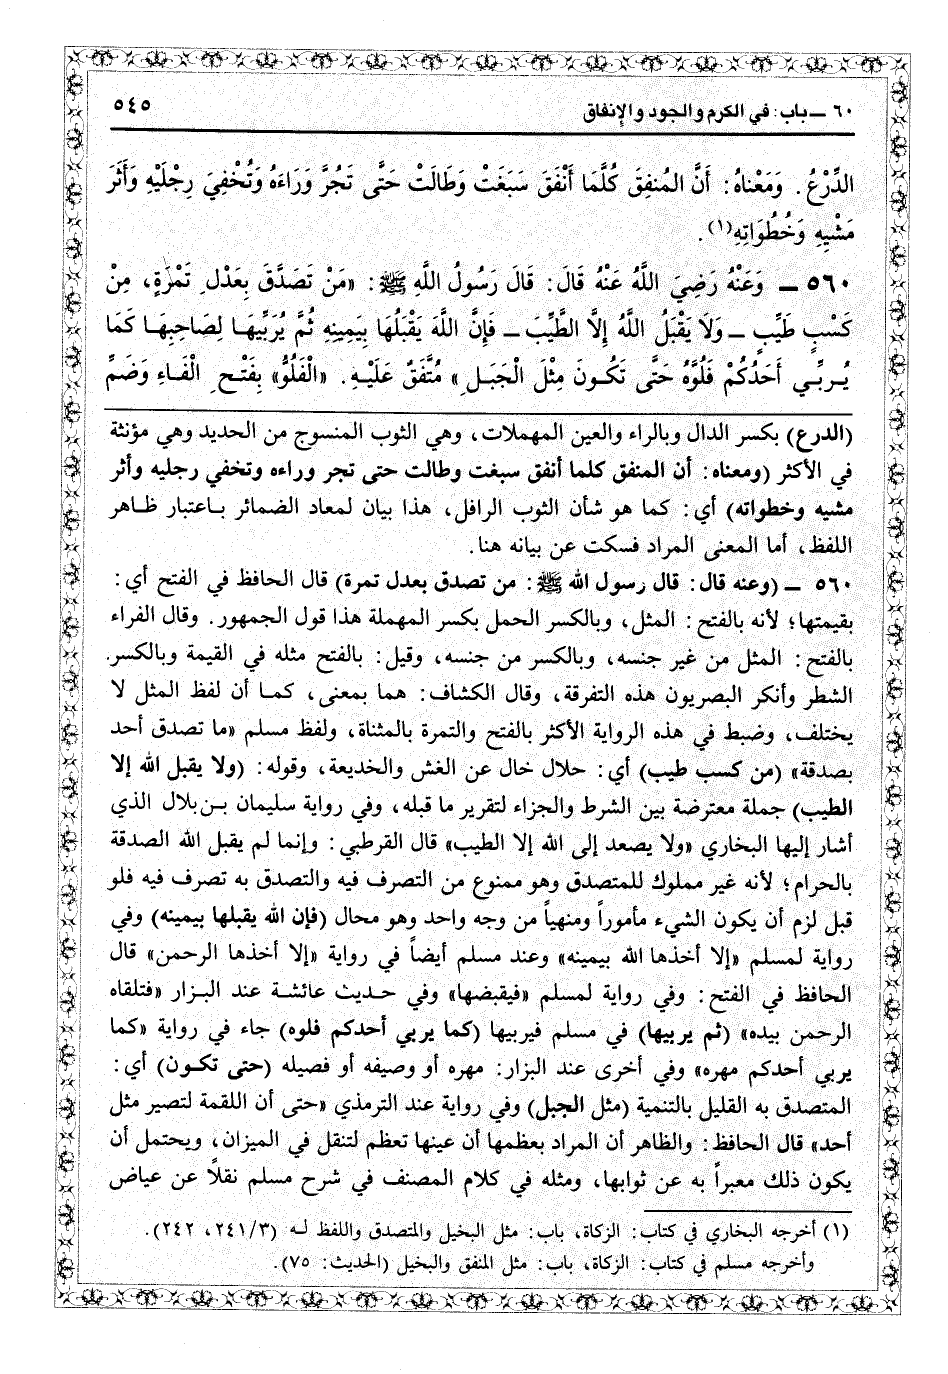 ٦٠ ــ باب: في الكرم والجود والإنفاق ٥٤٥
الدِّرْعُ. وَمَعْنَاهُ: أَنَّ المُنفِقَ كُلَّمَا أَنْفَقَ سَبَغَتْ وَطَالَتْ حَتَّى تَجُرَّ وَرَاءَهُ وَتُخْفِيَ رِجْلَيْهِ وَأَثَرَ
مَشْيِهِ وَخُطُوَاتِهِ(١).
٥٦٠ ــ وَعَنْهُ رَضِيَ اللَّهُ عَنْهُ قَالَ: قَالَ رَسُولُ اللَّهِ ﷺ: «مَنْ تَصَدَّقَ بِعَدْلِ تَمْرَةٍ، مِنْ
كَسْبٍ طَيِّبٍ ــ وَلَا يَقْبَلُ اللَّهُ إِلَّا الطَّيِّبَ ــ فَإِنَّ اللَّهَ يَقْبَلُهَا بِيَمِينِهِ ثُمَّ يُرَبِّيهَا لِصَاحِبِهَا كَمَا
يُرَبِّي أَحَدُكُمْ فَلُوَّهُ حَتَّى تَكُونَ مِثْلَ الْجَبَلِ» مُتَّفَقٌ عَلَيْهِ. «الْفَلُوُّ» بِفَتْحِ الْفَاءِ وَضَمِّ
(الدرع) بكسر الدال وبالراء والعين المهملات، وهي الثوب المنسوج من الحديد وهي مؤنثة
في الأكثر (ومعناه: أن المنفق كلما أنفق سبغت وطالت حتى تجر وراءه وتخفي رجليه وأثر
مشيه وخطواته) أي: كما هو شأن الثوب الرافل، هذا بيان لمعاد الضمائر باعتبار ظاهر
اللفظ، أما المعنى المراد فسكت عن بيانه هنا.
٥٦٠ ــ (وعنه قال: قال رسول الله ﷺ: من تصدق بعدل تمرة) قال الحافظ في الفتح أي:
بقيمتها؛ لأنه بالفتح: المثل، وبالكسر الحمل بكسر المهملة هذا قول الجمهور. وقال الفراء
بالفتح: المثل من غير جنسه، وبالكسر من جنسه، وقيل: بالفتح مثله في القيمة وبالكسر.
الشطر وأنكر البصريون هذه التفرقة، وقال الكشاف: هما بمعنى، كما أن لفظ المثل لا
يختلف، وضبط في هذه الرواية الأكثر بالفتح والتمرة بالمثناة، ولفظ مسلم «ما تصدق أحد
بصدقة» (من كسب طيب) أي: حلال خال عن الغش والخديعة، وقوله: (ولا يقبل الله إلا
الطيب) جملة معترضة بين الشرط والجزاء لتقرير ما قبله، وفي رواية سليمان بن بلال الذي
أشار إليها البخاري «ولا يصعد إلى الله إلا الطيب» قال القرطبي: وإنما لم يقبل الله الصدقة
بالحرام؛ لأنه غير مملوك للمتصدق وهو ممنوع من التصرف فيه والتصدق به تصرف فيه فلو
قبل لزم أن يكون الشيء مأموراً ومنهياً من وجه واحد وهو محال (فإن الله يقبلها بيمينه) وفي
رواية لمسلم «إلا أخذها الله بيمينه» وعند مسلم أيضاً في رواية «إلا أخذها الرحمن» قال
الحافظ في الفتح: وفي رواية لمسلم «فيقبضها» وفي حديث عائشة عند البزار «فتلقاه
الرحمن بيده» (ثم يربيها) في مسلم فيربيها (كما يربي أحدكم فلوه) جاء في رواية «كما
يربي أحدكم مهره» وفي أخرى عند البزار: مهره أو وصيفه أو فصيله (حتى تكون) أي:
المتصدق به القليل بالتنمية (مثل الجبل) وفي رواية عند الترمذي «حتى أن اللقمة لتصير مثل
أحد» قال الحافظ: والظاهر أن المراد بعظمها أن عينها تعظم لتنقل في الميزان، ويحتمل أن
يكون ذلك معبراً به عن ثوابها، ومثله في كلام المصنف في شرح مسلم نقلاً عن عياض
(١) أخرجه البخاري في كتاب: الزكاة، باب: مثل البخيل والمتصدق واللفظ له (٢٤١/٣، ٢٤٢).
وأخرجه مسلم في كتاب: الزكاة، باب: مثل المنفق والبخيل (الحديث: ٧٥).